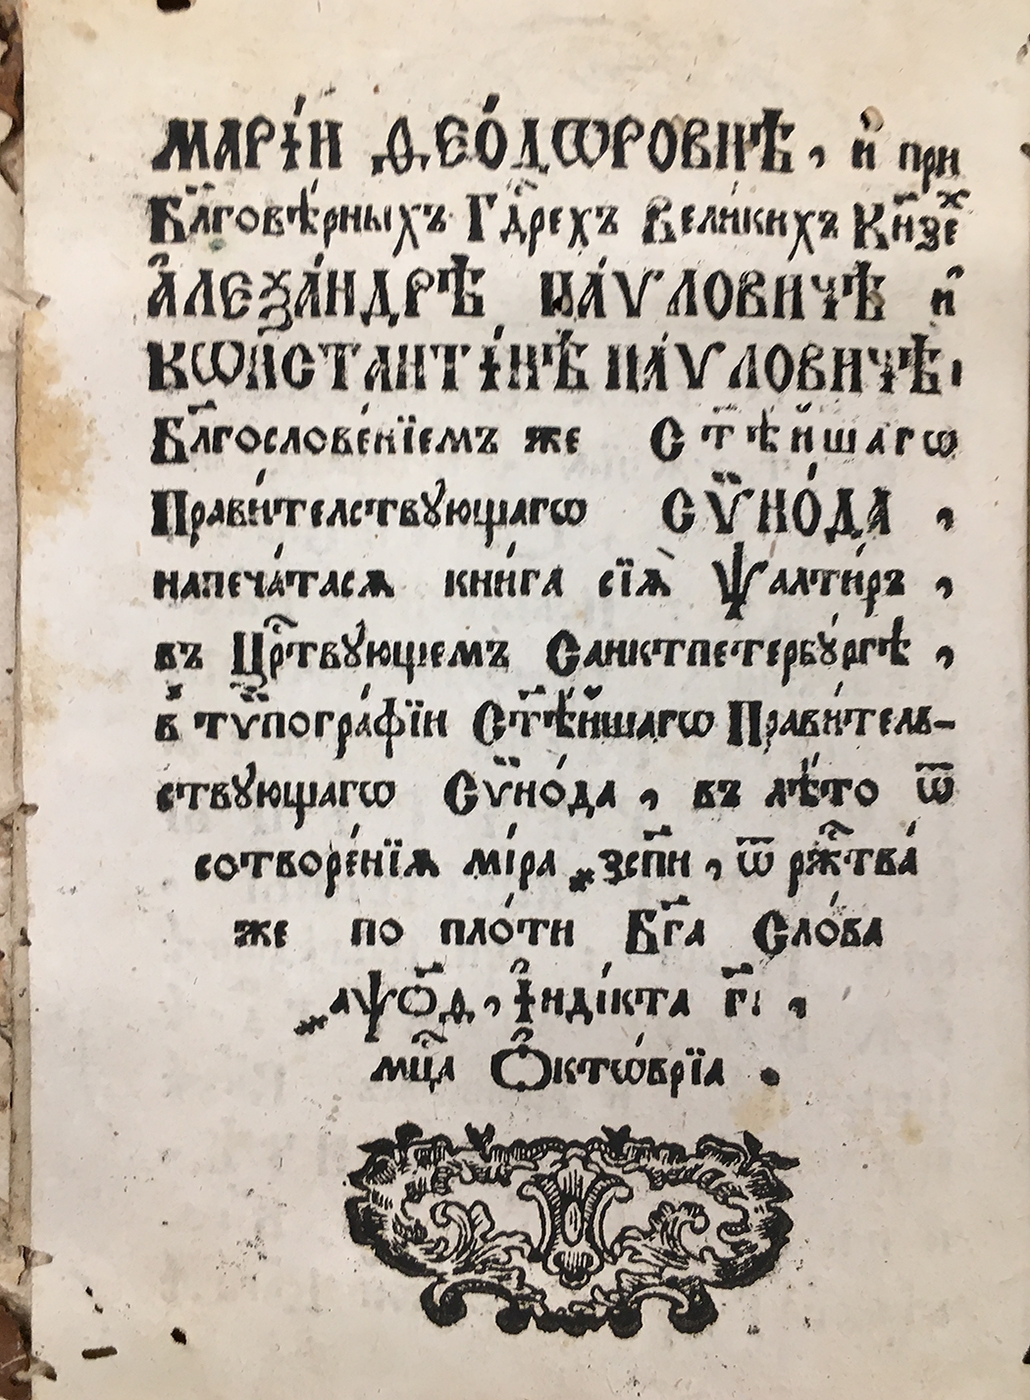 МАРІ́И Ѳ҆ЕО́ДѠРОВНѢ, и҆ при
Бл҃говѣ́рныхъ Гдⷭ҇рехъ Вели́кихъ Кн҃зеⷯ
А҆ЛЕѮА́НДРѢ ПА́ѴЛОВИЧѢ и҆
КѠНСТАНТІ́НѢ ПА́ѴЛОВИЧѢ,
Бл҃гослове́нїемъ же Ст҃ѣ́йшагѡ
Прави́телствꙋющагѡ СѴ̈НО́ДА,
напеча́тасѧ кни́га сїѧ̀ Ѱалти́рь,
въ Црⷭ҇твꙋющемъ Санктпетербꙋ́ргѣ,
в̾ тѷпогра́фїи Ст҃ѣ́йшагѡ Прави́тель-
ствꙋющагѡ Сѷно́да, въ лѣ́то ѿ
сотворе́нїѧ мі́ра ҂зсп҃и, ѿ ржⷭ҇тва́
же по пло́ти Бг҃а Сло́ва
҂аѱѻ҃ѳ, І҆нді́кта г҃і,
мц҇а Ѻ҆ктѡ́врїа.